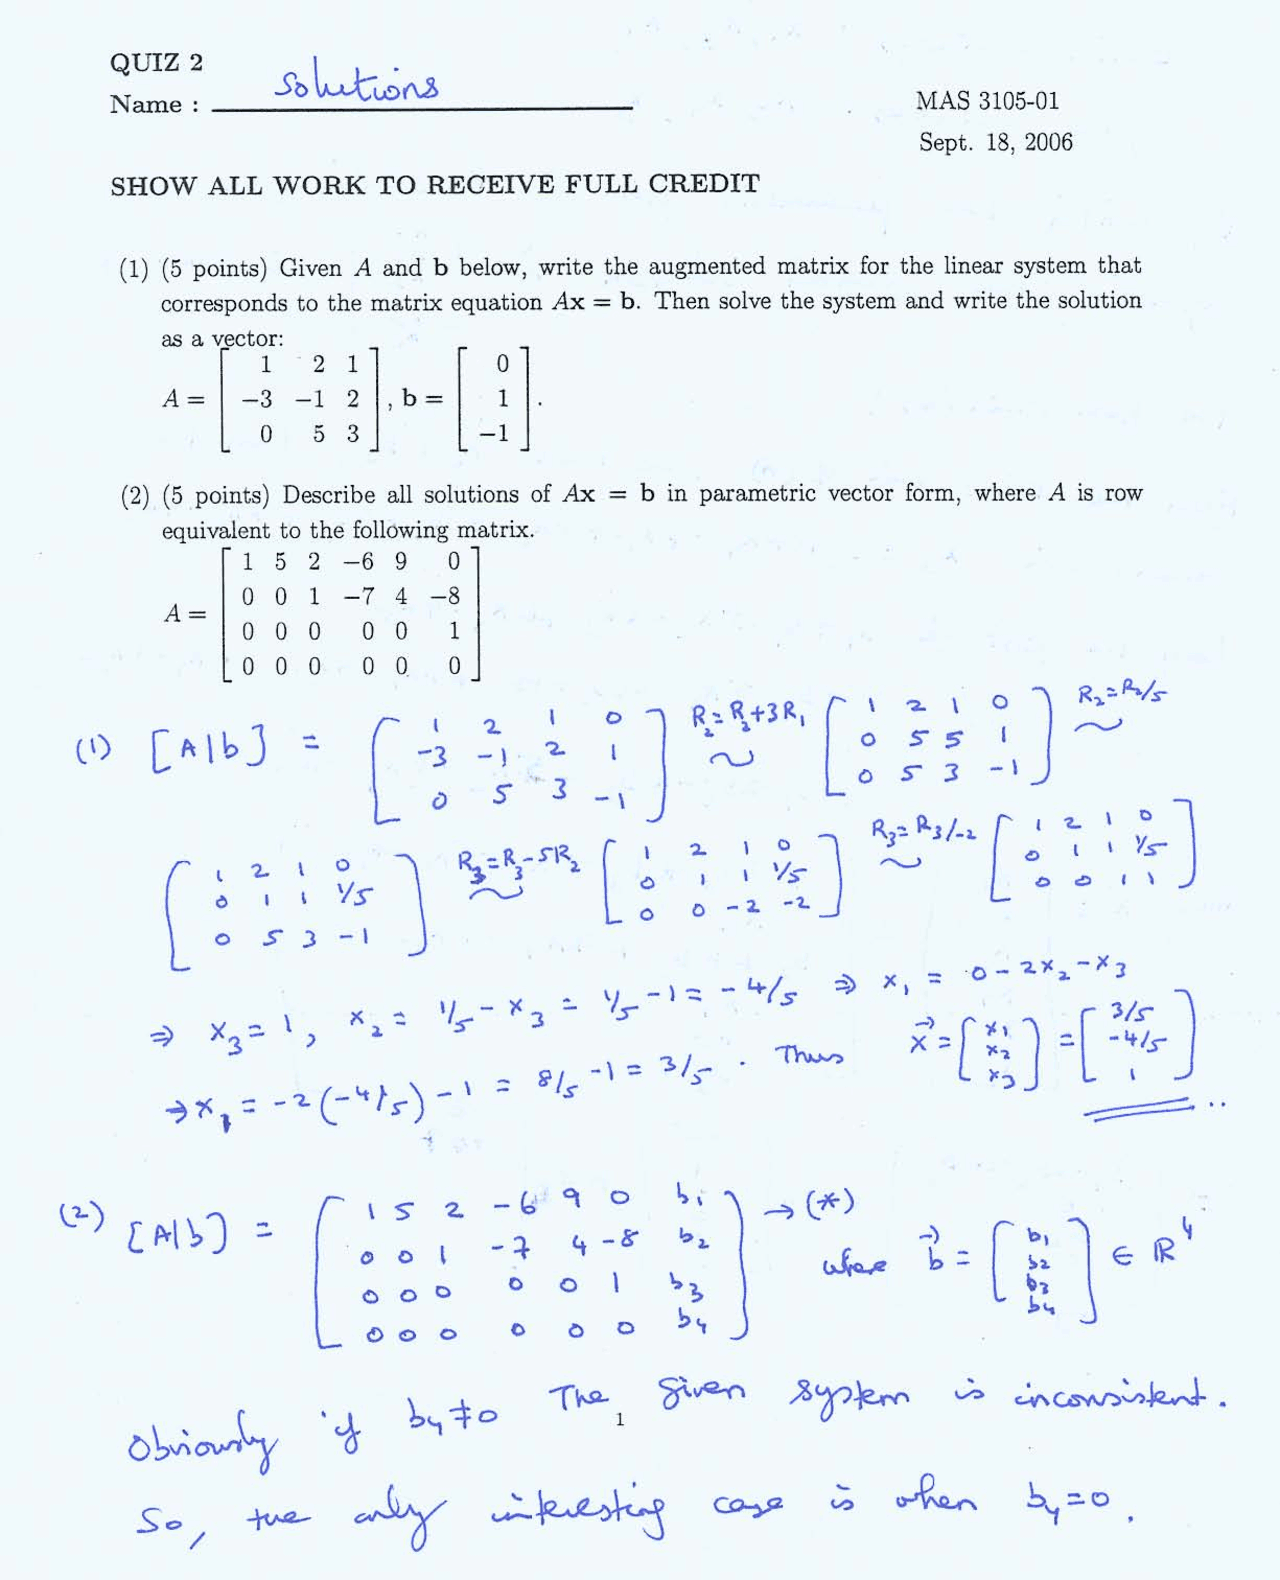 QUIZ 2
Name : solutions
MAS 3105-01
Sept. 18, 2006
SHOW ALL WORK TO RECEIVE FULL CREDIT
(1) (5 points) Given A and b below, write the augmented matrix for the linear system that
corresponds to the matrix equation Ax = b. Then solve the system and write the solution
as a vector:
A = [ 1 2 1 ; -3 -1 2 ; 0 5 3 ], b = [ 0 ; 1 ; -1 ].
(2) (5 points) Describe all solutions of Ax = b in parametric vector form, where A is row
equivalent to the following matrix.
A = [ 1 5 2 -6 9 0 ; 0 0 1 -7 4 -8 ; 0 0 0 0 0 1 ; 0 0 0 0 0 0 ]
(1) [A|b] = [ 1 2 1 0 ; -3 -1 2 1 ; 0 5 3 -1 ] R₂=R₂+3R₁ ~ [ 1 2 1 0 ; 0 5 5 1 ; 0 5 3 -1 ] R₂=R₂/5 ~
[ 1 2 1 0 ; 0 1 1 1/5 ; 0 5 3 -1 ] R₃=R₃-5R₂ ~ [ 1 2 1 0 ; 0 1 1 1/5 ; 0 0 -2 -2 ] R₃=R₃/-2 ~ [ 1 2 1 0 ; 0 1 1 1/5 ; 0 0 1 1 ]
⇒ x₃=1, x₂ = 1/5 - x₃ = 1/5 - 1 = -4/5 ⇒ x₁ = 0-2x₂-x₃
⇒ x₁ = -2(-4/5) -1 = 8/5 -1 = 3/5. Thus x⃗ = [ x₁ ; x₂ ; x₃ ] = [ 3/5 ; -4/5 ; 1 ] ..
(2) [A|b] = [ 1 5 2 -6 9 0 b₁ ; 0 0 1 -7 4 -8 b₂ ; 0 0 0 0 0 1 b₃ ; 0 0 0 0 0 0 b₄ ] → (*)
where b⃗ = [ b₁ ; b₂ ; b₃ ; b₄ ] ∈ R⁴
Obviously if b₄≠0 The given system is inconsistent.
1
So, the only interesting case is when b₄=0.